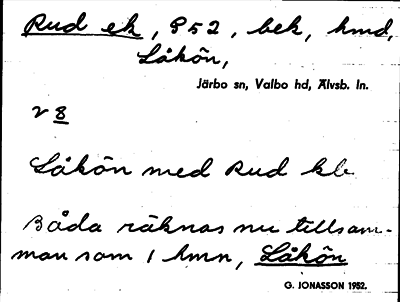 Rud ek, 952, bek, hmd,
Låkön,
Järbo sn, Valbo hd, Älvsb. ln.
v 8
Låkön med Rud kb
Båda räknas nu tillsam-
man som 1 hmn, Låkön
G. JONASSON 1952.